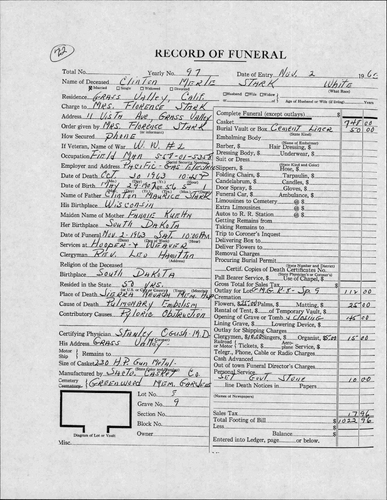 72
RECORD OF FUNERAL
Total No. Yearly No. 97 Date of Entry Nov. 2 196
Name of Deceased Clinton Merle STARK White
Married Single Widowed Divorced Husband Wife Widow (What Race)
Residence Grass Valley, Calif. Age of Husband or Wife (if living) Years
Charge to Mrs. Florence Stark
Address 11 Vista Ave, Grass Valley
Order given by Mrs. Florence Stark
How Secured Phone
If Veteran, Name of War W.W. # 2
Occupation Field Man
Employer and Address Pacific Gas
Date of Death Oct 30 1963 10:45 P
Date of Birth May 29 Age 56 5 1
Name of Father Clinton Maurice Stark
His Birthplace Wisconsin
Maiden Name of Mother
Her Birthplace South Dakota
Date of Funeral Nov-2-1963 Sat. 10:00 AM
Services at Hooper & Weaver
Clergyman Rev. Leo
Religion of the Deceased
Birthplace South Dakota
Resided in the State 50 yrs.
Place of Death Sierra Nevada Mem. Hosp
Cause of Death Pulmonary Embolism
Contributory Causes Obstruction
Certifying Physician Stanley M.D.
His Address Grass Valley
Motor Ship Remains to
Size of Casket
Manufactured by Casket Co.
Cemetery Crematory Greenwood Mem. Gardens
Lot No. 8
Grave No. 9
Section No.
Block No.
Owner
Diagram of Lot or Vault
Misc.
Complete Funeral (except outlays) $
Casket 745 00
Burial Vault or Box Cement Liner 50 00
(State Kind)
Embalming Body
(Name of Embalmer)
Barber, $ Hair Dressing, $
Dressing Body, $ Underwear, $
Suit or Dress
(State Kind and Color)
Slippers, $ Hose, $
Folding Chairs, $ Torpedo, $
Candelabrum, $ Candles, $
Door Spray, $ Gloves, $
Funeral Car, $ Ambulance, $
Limousines to Cemetery @ $
Extra Limousines @ $
Autos to R. R. Station @ $
Getting Remains from
Taking Remains to
Trip to Coroner's Inquest
Delivering Box to
Flowers to
Removal Charges
Procuring Burial Permit
Certif. Copies of Death Certificates No.
Pall Bearer Service, $ Use of Chapel, $
Gross Total for Sales Tax $
Outlay for Lot 112 00
Cremation
Flowers, $25.00 Palms, $ Matting, $ 25 00
Rental of Tent, $ of Temporary Vault, $
Opening of Grave or Tomb & Closing 45 00
Lining Grave, $ Lowering Device, $
Outlay for Shipping Charges
Clergymen, $10.00 Singers, $ Organist, $5.00 15 00
Railroad or Motor Tickets, $ Aeroplane Service, $
Telgr., Phone, Cable or Radio Charges
Cash Advanced
Out of town Funeral Director's Charges
Personal Service
Set Govt Stone 10 00
line Death Notices in Papers
(Names or Newspapers)
Sales Tax 17 96
Total Footing of Bill $ 1022 96
Less
Balance $
Entered into Ledger, page or below.